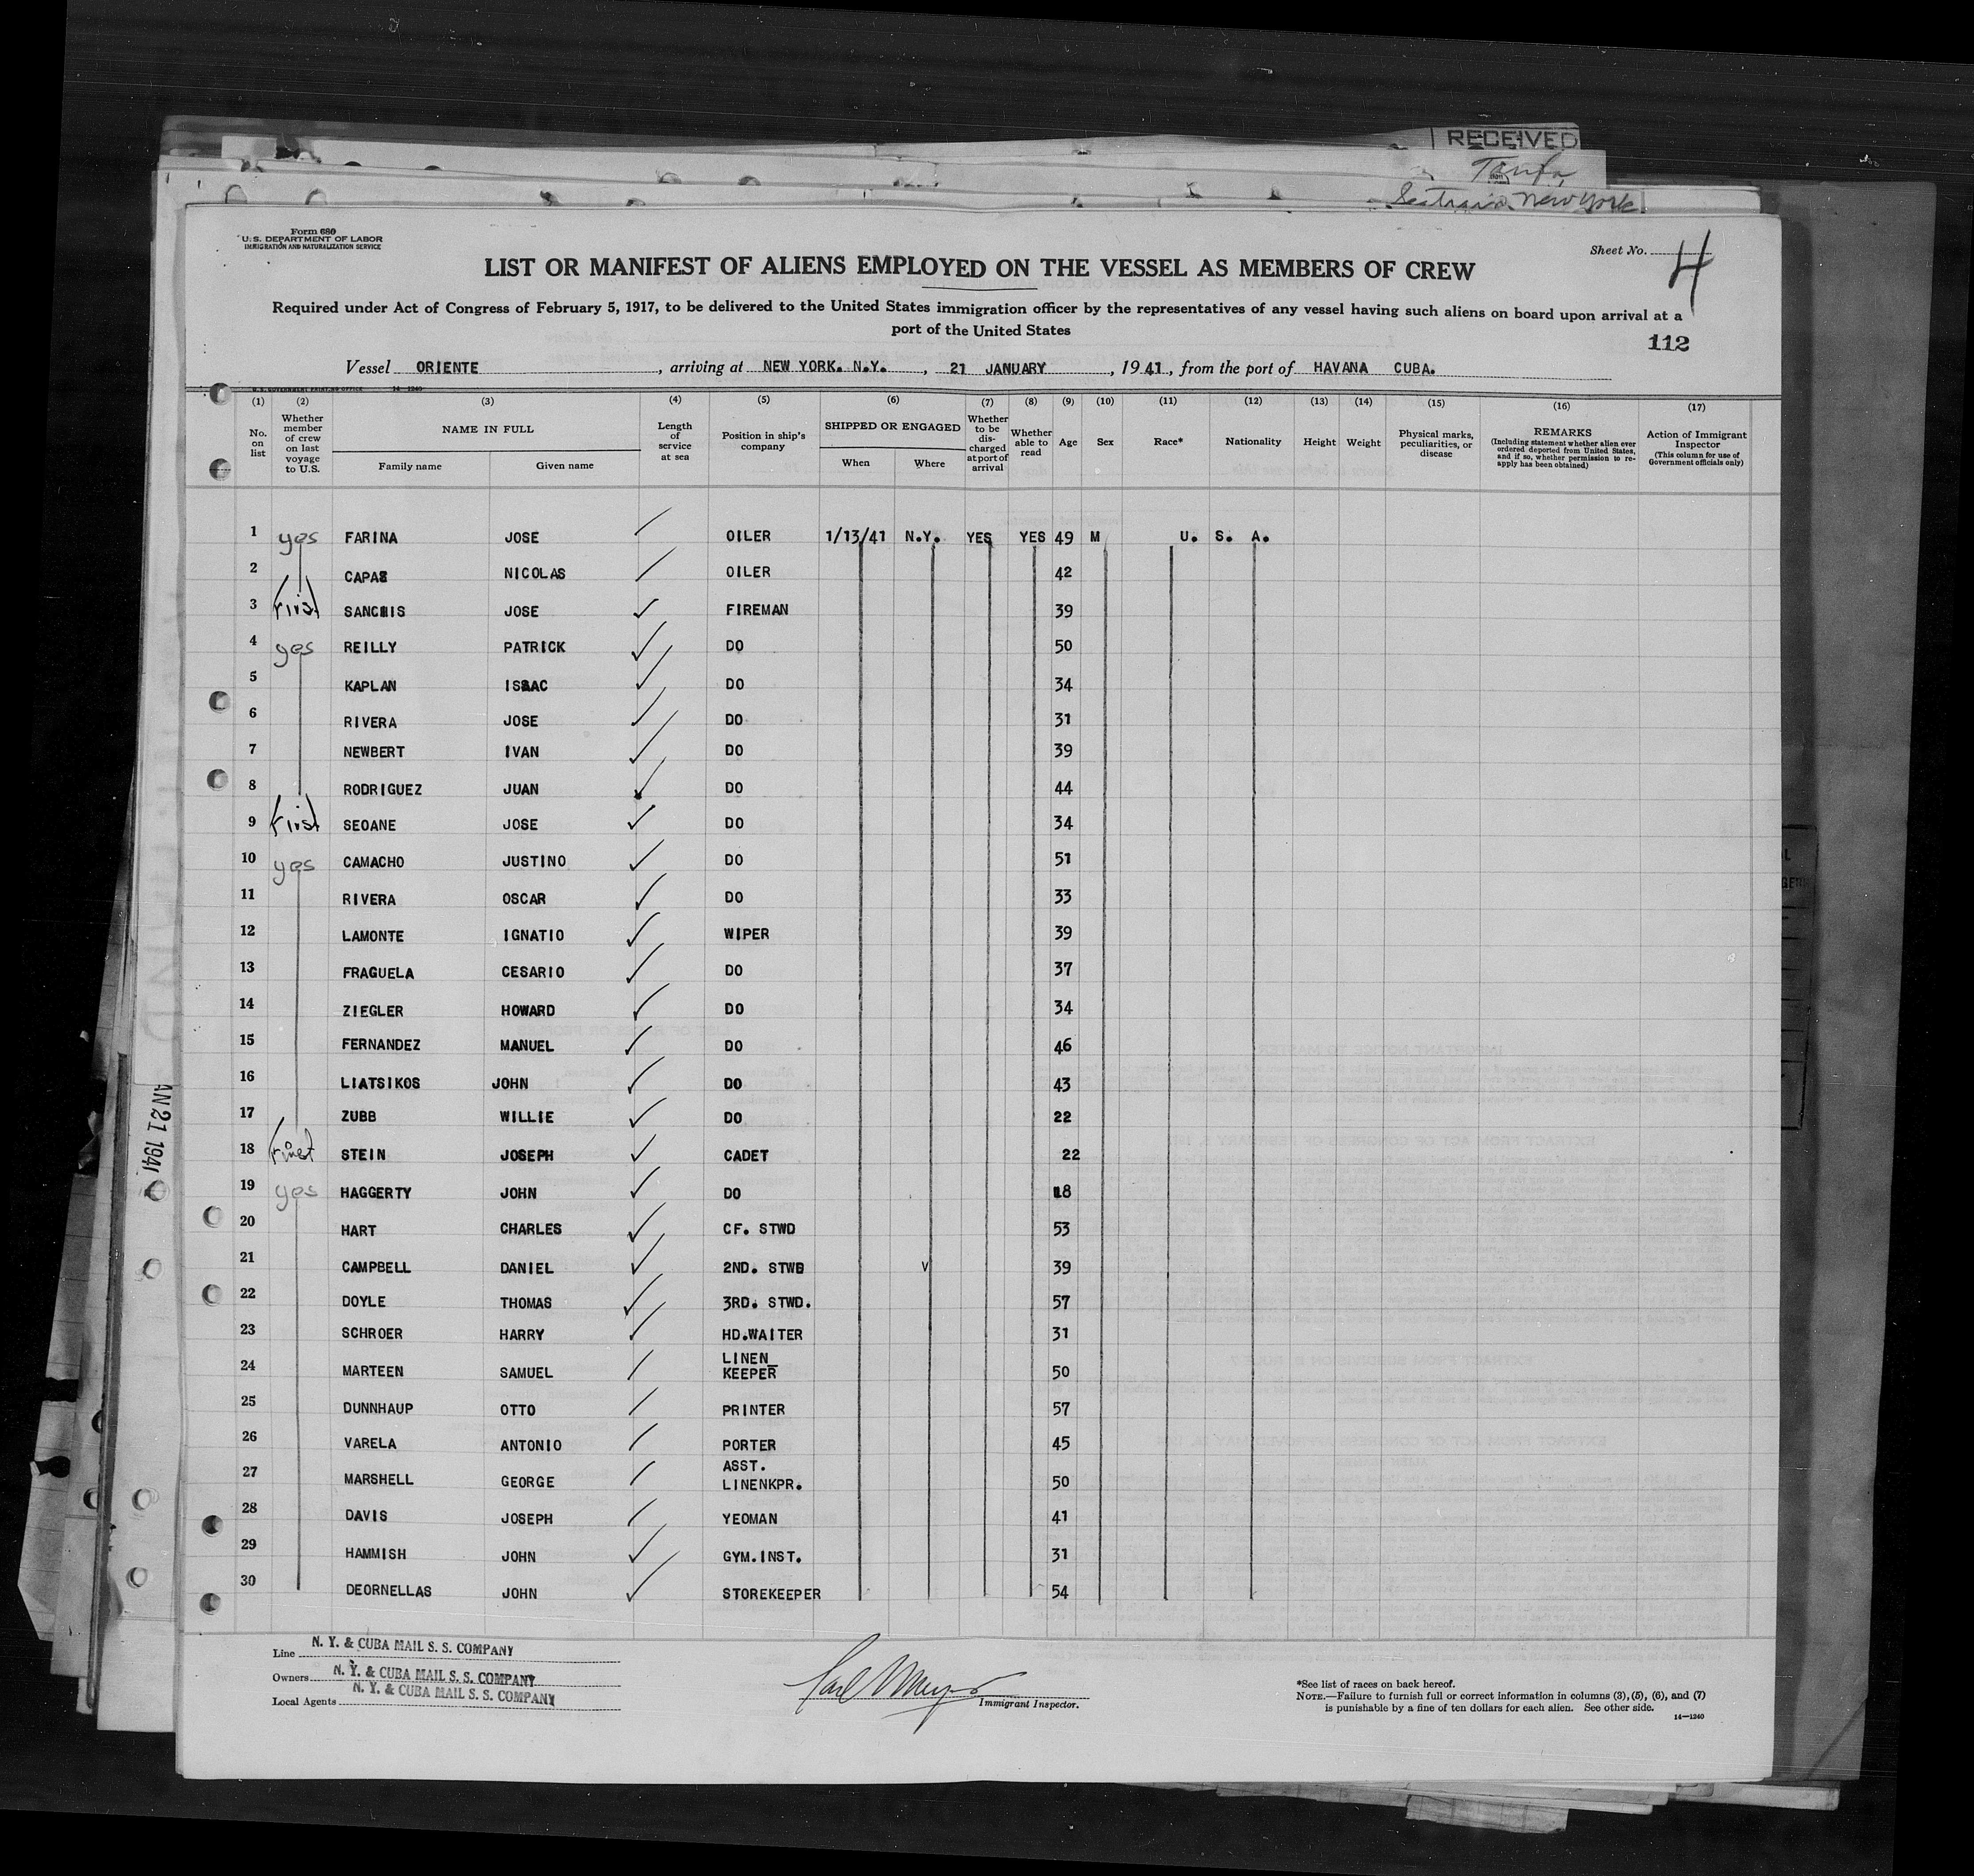 RECEIVED
New York
Form 680
U. S. DEPARTMENT OF LABOR
IMMIGRATION AND NATURALIZATION SERVICE
Sheet No. 4
LIST OR MANIFEST OF ALIENS EMPLOYED ON THE VESSEL AS MEMBERS OF CREW
Required under Act of Congress of February 5, 1917, to be delivered to the United States immigration officer by the representatives of any vessel having such aliens on board upon arrival at a
port of the United States
112
Vessel ORIENTE, arriving at NEW YORK. N.Y., 21 JANUARY, 1941, from the port of HAVANA CUBA.
U. S. GOVERNMENT PRINTING OFFICE 14—1240
(1) (2) (3) (4) (5) (6) (7) (8) (9) (10) (11) (12) (13) (14) (15) (16) (17)
No. on list
Whether member of crew on last voyage to U.S.
NAME IN FULL
Family name
Given name
Length of service at sea
Position in ship's company
SHIPPED OR ENGAGED
When
Where
Whether to be discharged at port of arrival
Whether able to read
Age
Sex
Race*
Nationality
Height
Weight
Physical marks, peculiarities, or disease
REMARKS
(Including statement whether alien ever ordered deported from United States, and if so, whether permission to reapply has been obtained)
Action of Immigrant Inspector
(This column for use of Government officials only)
1 yes FARINA JOSE OILER 1/13/41 N.Y. YES YES 49 M U. S. A.
2 CAPAZ NICOLAS OILER 42
3 First SANCHIS JOSE FIREMAN 39
4 yes REILLY PATRICK DO 50
5 KAPLAN ISAAC DO 34
6 RIVERA JOSE DO 31
7 NEWBERT IVAN DO 39
8 RODRIGUEZ JUAN DO 44
9 First SEOANE JOSE DO 34
10 yes CAMACHO JUSTINO DO 51
11 RIVERA OSCAR DO 33
12 LAMONTE IGNATIO WIPER 39
13 FRAGUELA CESARIO DO 37
14 ZIEGLER HOWARD DO 34
15 FERNANDEZ MANUEL DO 46
16 LIATSIKOS JOHN DO 43
17 ZUBB WILLIE DO 22
18 First STEIN JOSEPH CADET 22
19 yes HAGGERTY JOHN DO 18
20 HART CHARLES CF. STWD 53
21 CAMPBELL DANIEL 2ND. STWD 39
22 DOYLE THOMAS 3RD. STWD. 57
23 SCHROER HARRY HD.WAITER 31
24 MARTEEN SAMUEL LINEN_ KEEPER 50
25 DUNNHAUP OTTO PRINTER 57
26 VARELA ANTONIO PORTER 45
27 MARSHELL GEORGE ASST. LINENKPR. 50
28 DAVIS JOSEPH YEOMAN 41
29 HAMMISH JOHN GYM.INST. 31
30 DEORNELLAS JOHN STOREKEEPER 54
AN 21 1941
Line N. Y. & CUBA MAIL S. S. COMPANY
Owners N. Y. & CUBA MAIL S. S. COMPANY
Local Agents N. Y. & CUBA MAIL S. S. COMPANY
Immigrant Inspector.
*See list of races on back hereof.
NOTE.—Failure to furnish full or correct information in columns (3), (5), (6), and (7)
is punishable by a fine of ten dollars for each alien. See other side.
14—1240